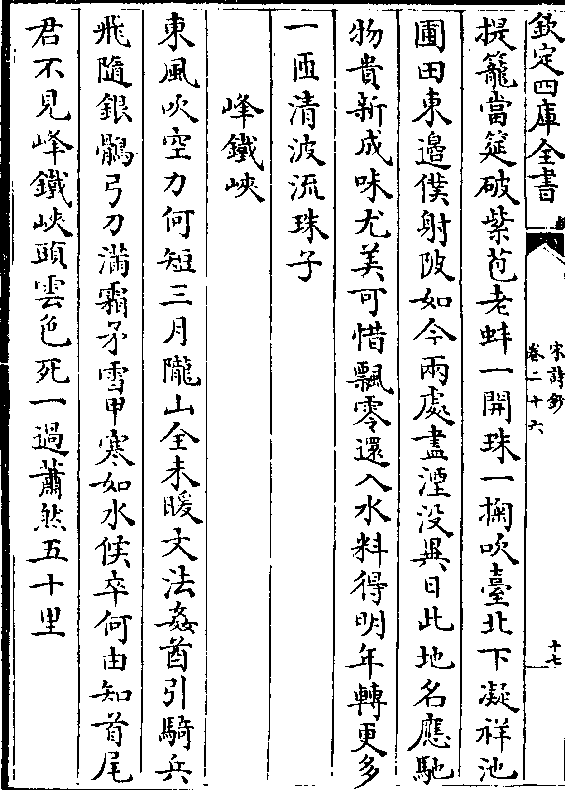 欽定四庫全書
宋詩鈔
卷二十六
十七
提籠當筵破紫苞老蚌一開珠一掬吹臺北下凝祥池
圃田東邊僕射陂如今兩處盡湮没異日此地名應馳
物貴新成味尤美可惜飄零還入水料得明年轉更多
一匝清波流珠子
峰鐵峽
東風吹空力何短三月隴山全未暖文法姦酋引騎兵
飛隨銀鶻弓刀滿霜矛雪甲寒如水候卒何由知首尾
君不見峰鐵峽頭雲色死一過蕭然五十里